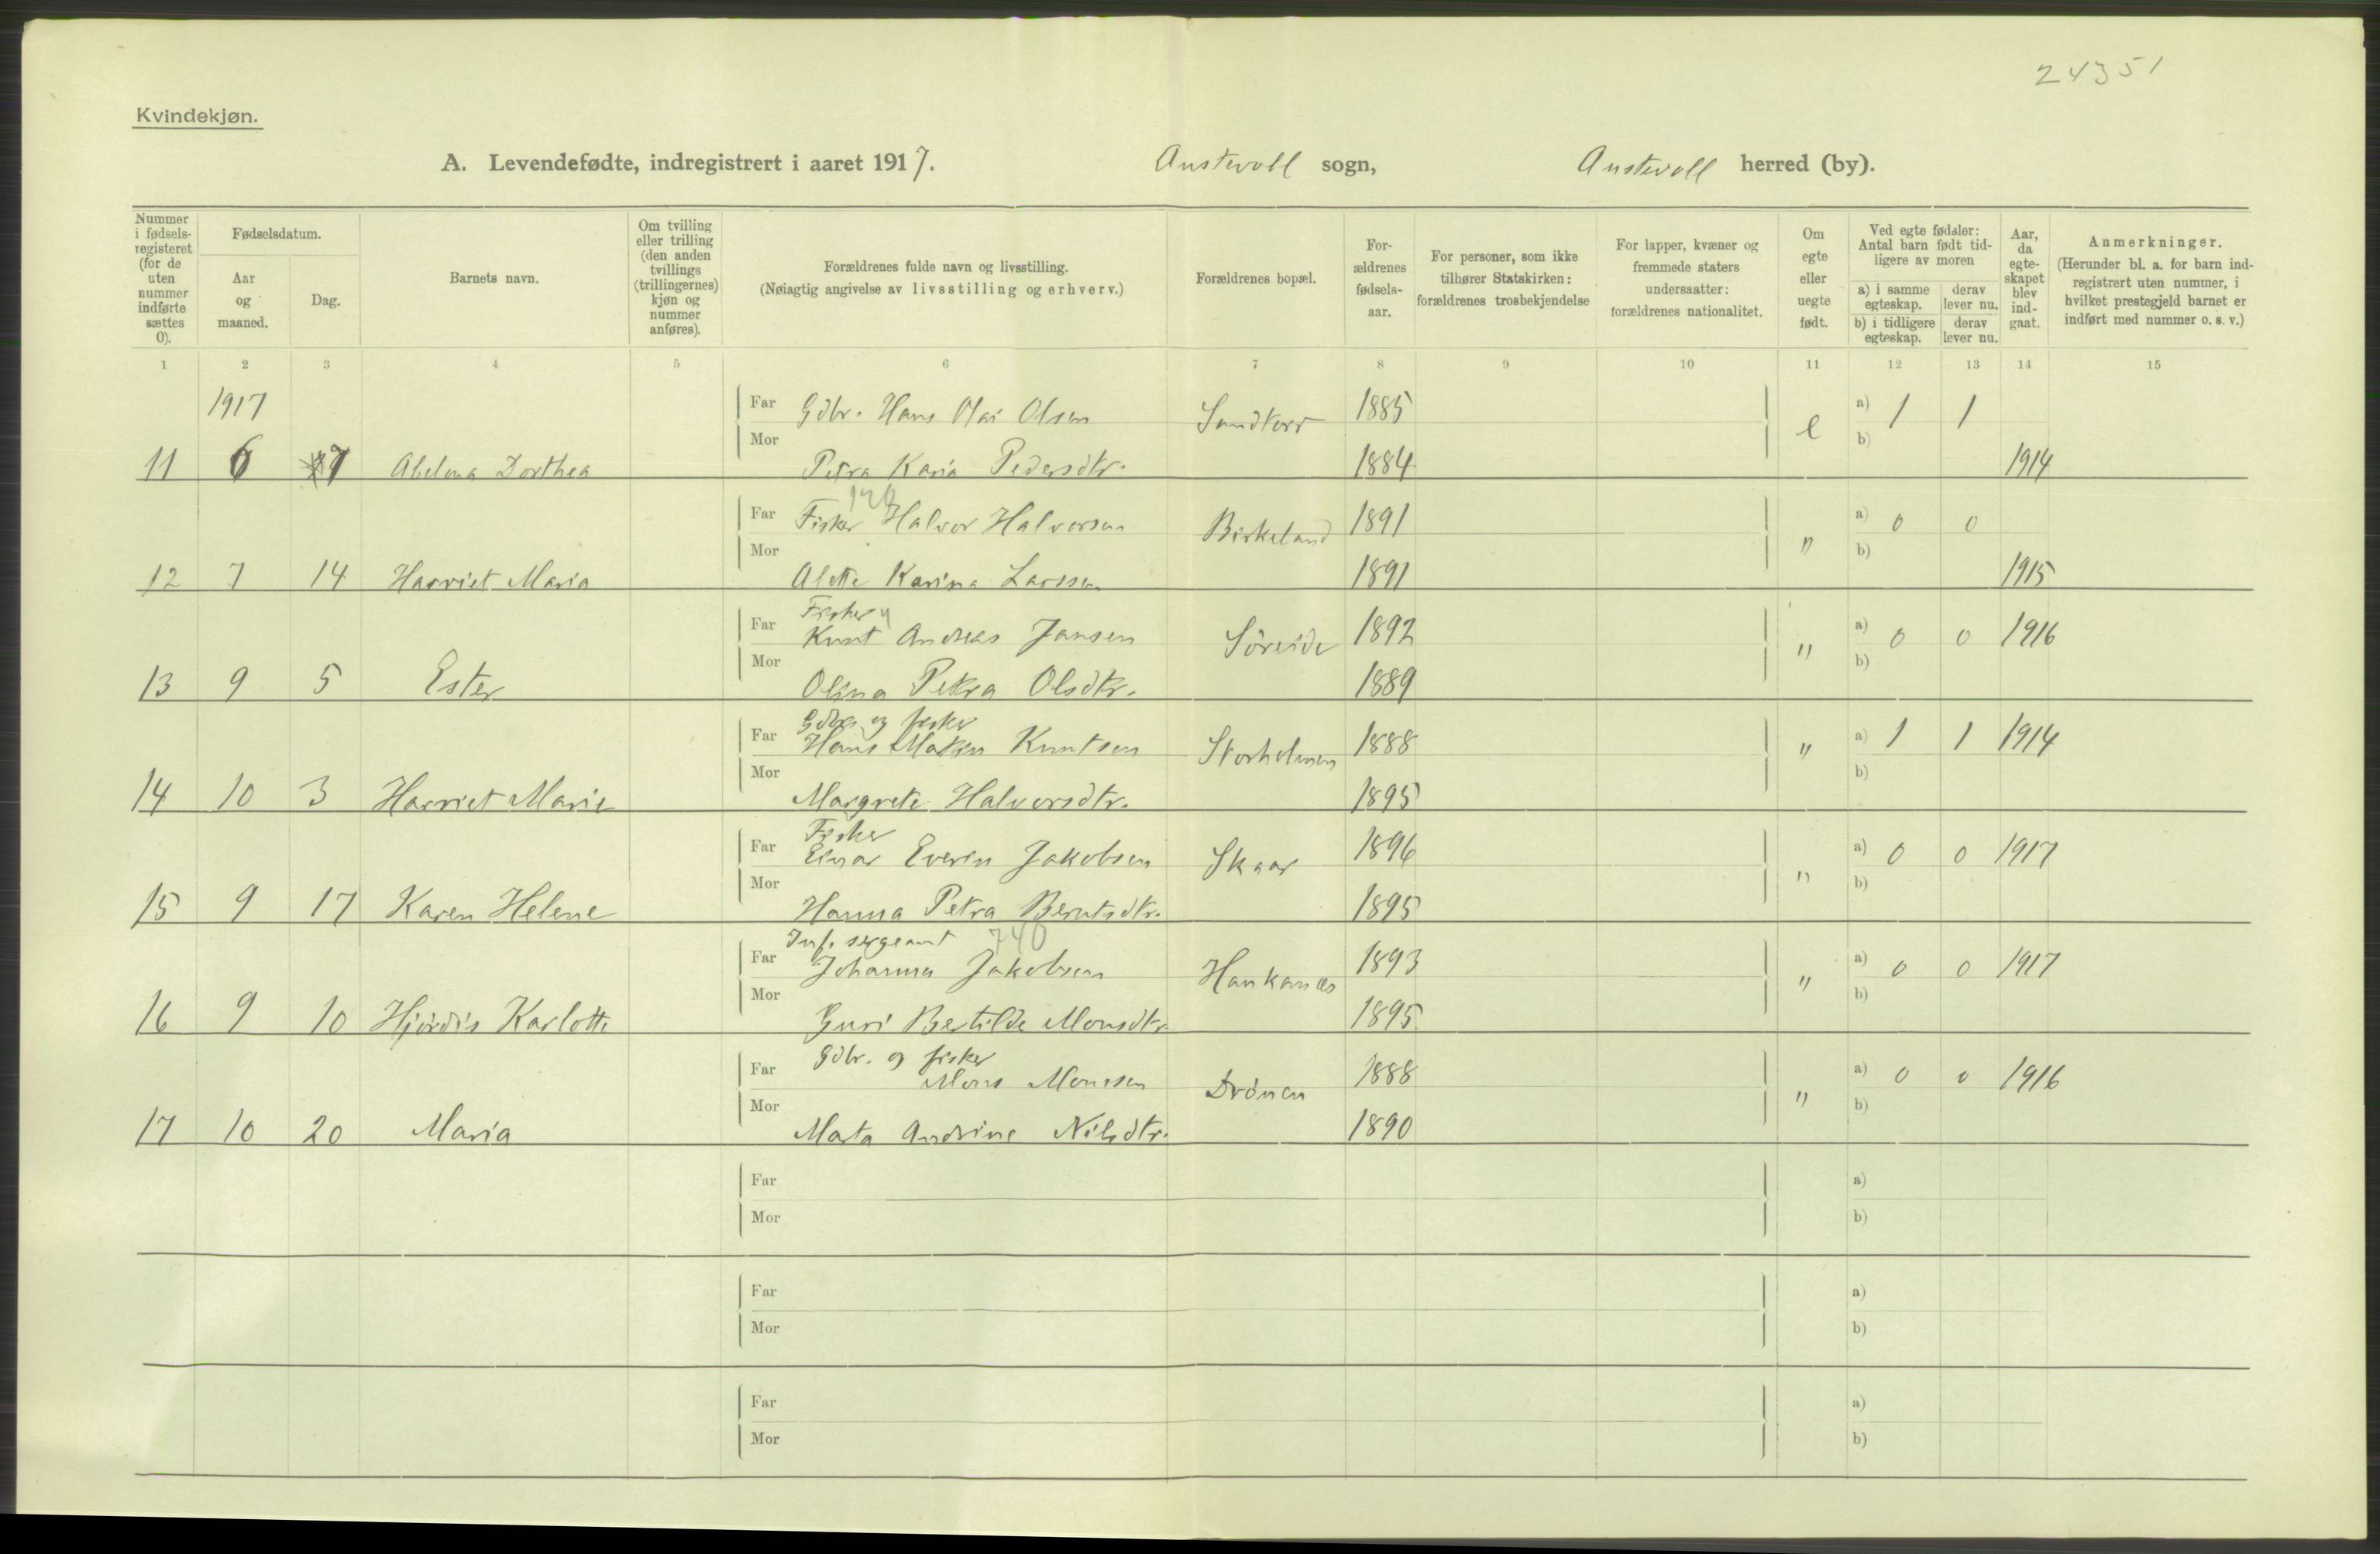 24351
Kvindekjøn.
A. Levendefødte, indregistrert i aaret 1917. Austevoll sogn, Austevoll herred (by).
Nummer i fødsels-registeret (for de uten nummer indførte sættes 0).
Fødselsdatum.
Aar og maaned.
Dag.
Barnets navn.
Om tvilling eller trilling (den anden tvillings (trillingernes) kjøn og nummer anføres).
Forældrenes fulde navn og livsstilling.
(Nøiagtig angivelse av livsstilling og erhverv.)
Forældrenes bopæl.
For-ældrenes fødsels-aar.
For personer, som ikke tilhører Statskirken: forældrenes trosbekjendelse
For lapper, kvæner og fremmede staters undersaatter: forældrenes nationalitet.
Om egte eller uegte født.
Ved egte fødsler: Antal barn født tid-ligere av moren
a) i samme egteskap. derav lever nu.
b) i tidligere egteskap. derav lever nu.
Aar, da egte-skapet blev ind-gaat.
Anmerkninger.
(Herunder bl. a. for barn ind-registrert uten nummer, i hvilket prestegjeld barnet er indført med nummer o. s. v.)
1 2 3 4 5 6 7 8 9 10 11 12 13 14 15
1917 Far Gdbr. Hans Olai Olsen 1885 a) 1 1
Mor e b)
11 6 7 Abelona Dorthea Petra Karia Pedersdtr. 1884 1914
Far Fisker Halvor Halvorsen Birkeland 1891 a) 0 0
Mor " b)
12 7 14 Harriet Maria Alette Karina Larssen 1891 1915
Fisker
Far Knut Andreas Jansen Söreide 1892 a) 0 0 1916
Mor " b)
13 9 5 Ester Olina Petra Olsdtr. 1889
Gdbr. og fisker
Far Hans Knutsen Storholmen 1888 " a) 1 1 1914
Mor b)
14 10 3 Harriet Marie Margrete Halvorsdtr. 1895
Fisker
Far Einar Everin Jakobsen Skaar 1896 a) 0 0 1917
Mor " b)
15 9 17 Karen Helene Hanna Petra Berntsdtr. 1895
Inf. sergeant 740
Far Johannes Jakobsen Haukanes 1893 a) 0 0 1917
Mor " b)
16 9 10 Hjördis Karlotte Guri Bertilde Monsdtr. 1895
Gdbr. og fisker
Far Mons Monssen Drönen 1888 a) 0 0 1916
Mor " b)
17 10 20 Maria Marta Andrine Nilsdtr. 1890
Far a)
Mor b)
Far a)
Mor b)
Far a)
Mor b)